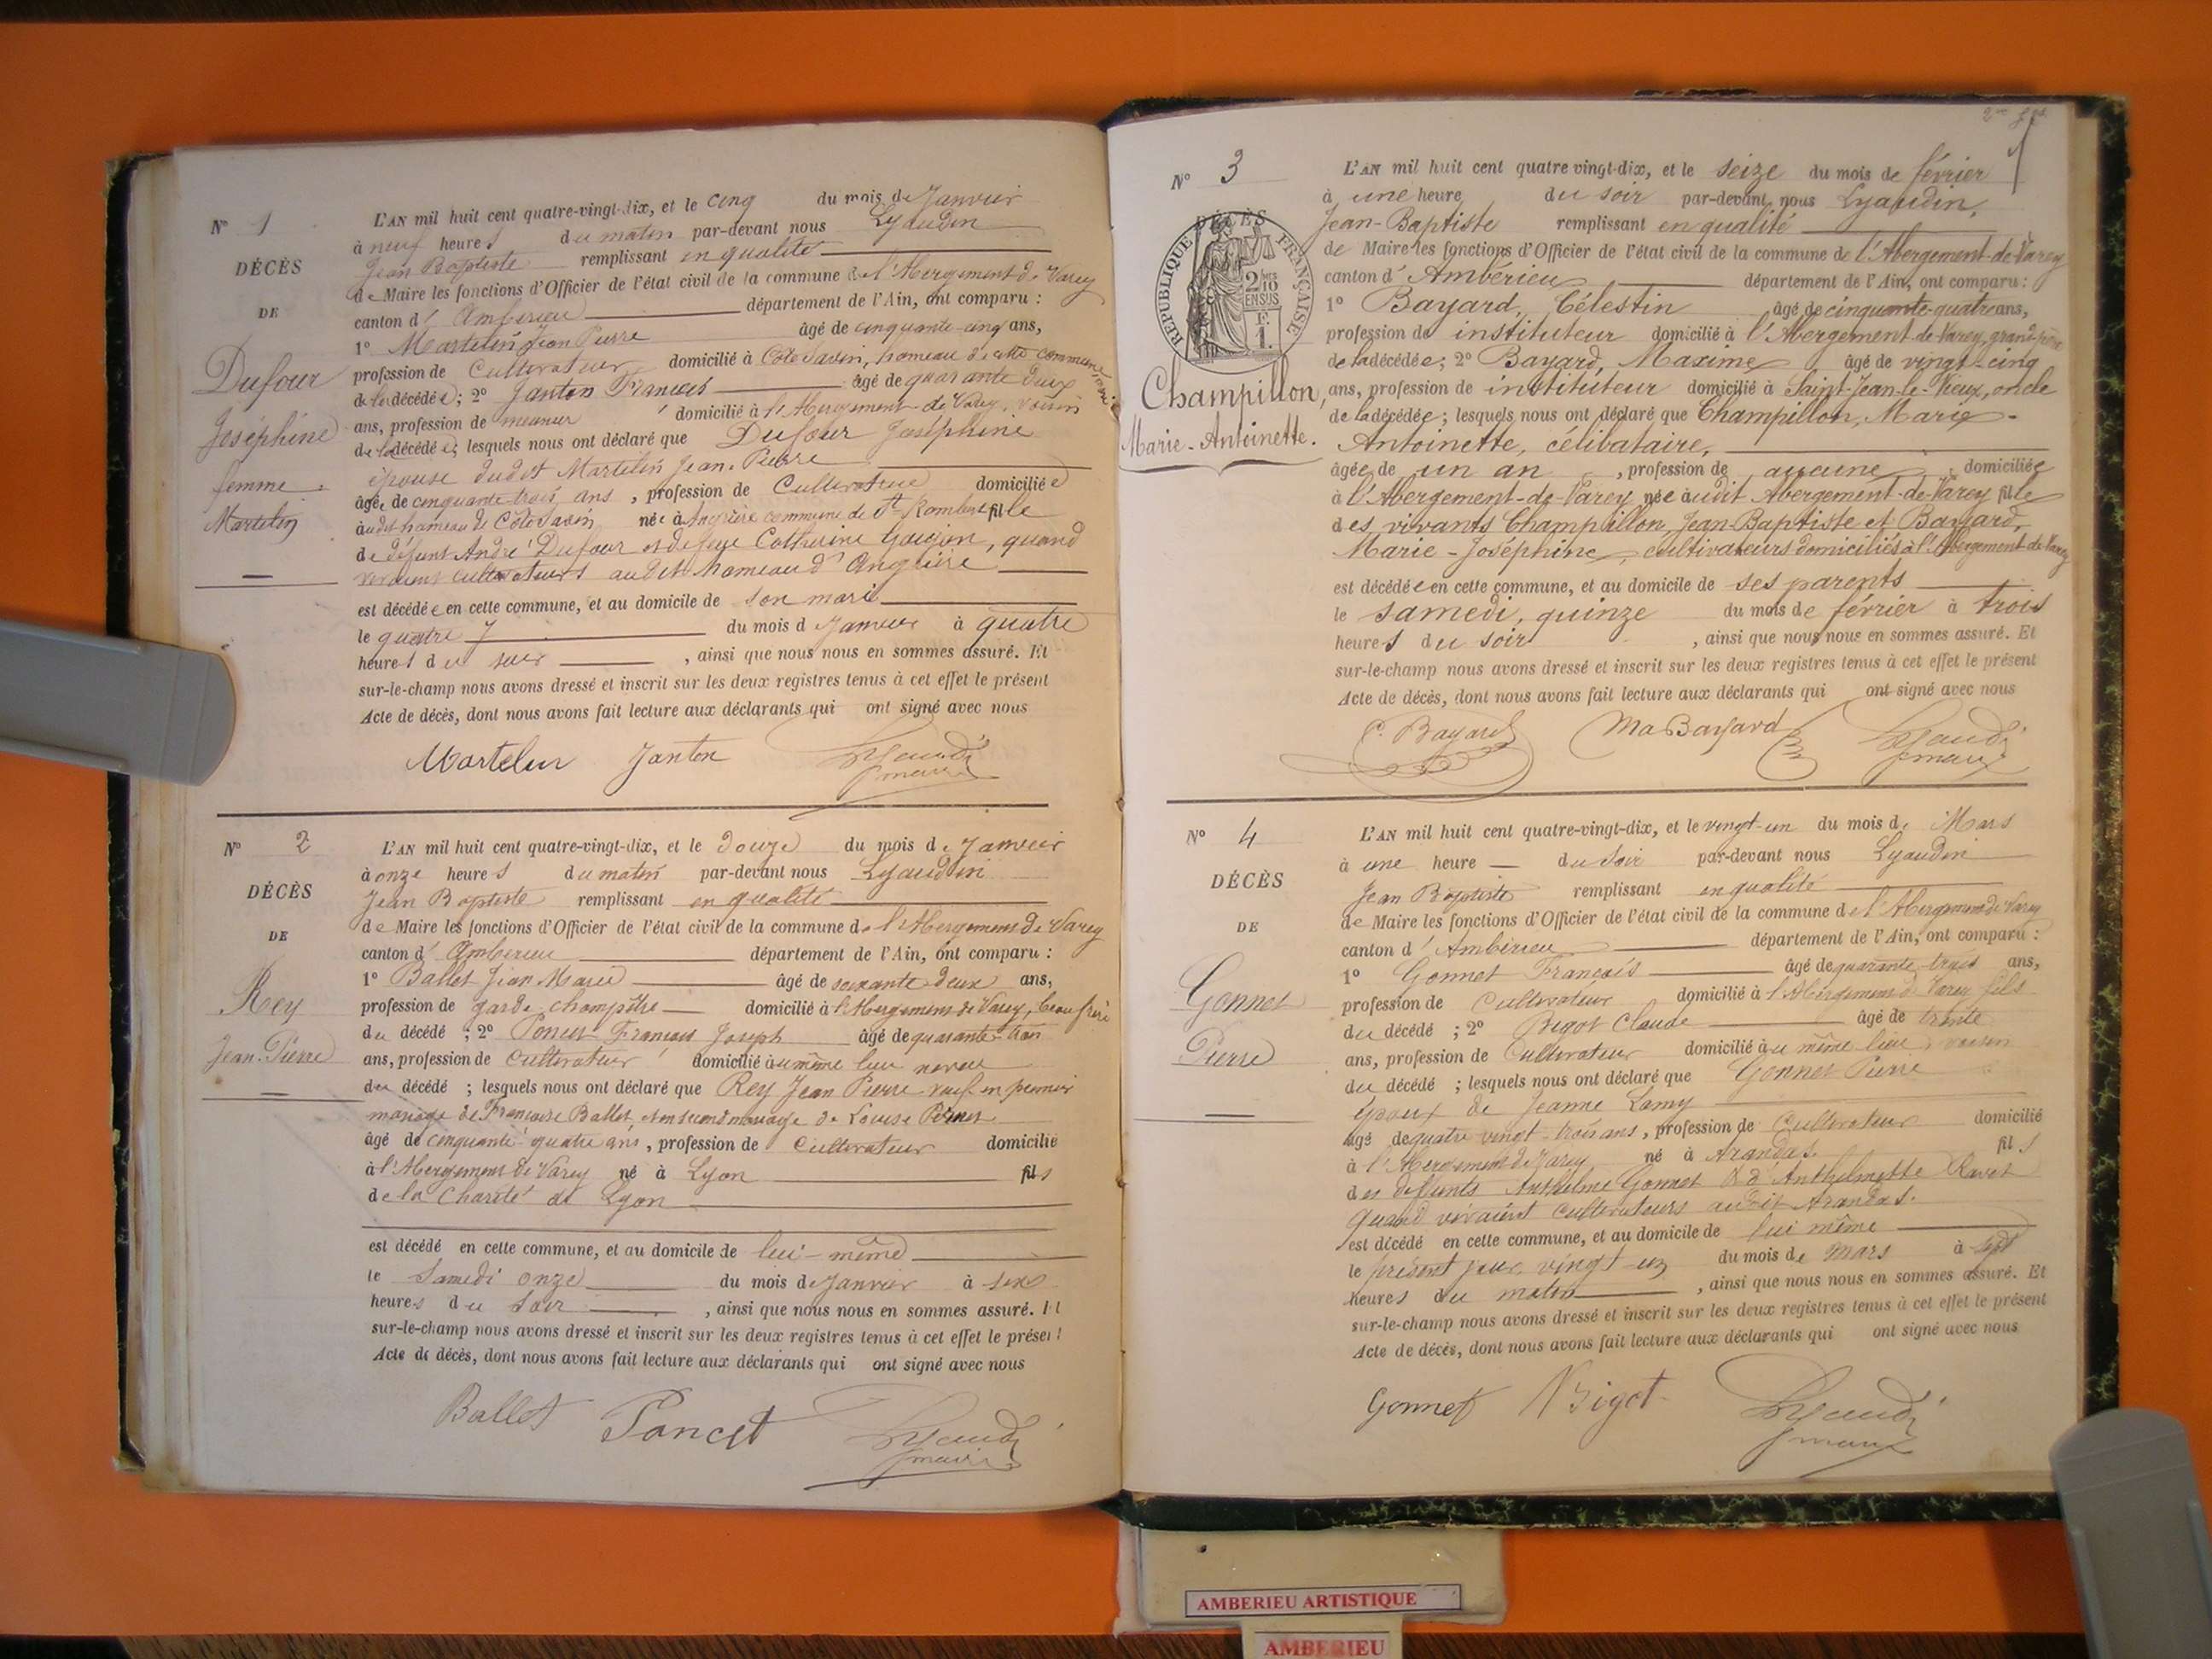 N° 1
DÉCÈS
DE
Dufour
Joséphine
femme
Martelin
L'AN mil huit cent quatre-vingt-dix, et le cinq du mois de Janvier
à neuf heures du matin par-devant nous Lyaudin
Jean Baptiste remplissant en qualité
de Maire les fonctions d'Officier de l'état civil de la commune de l'Abergement de Varey
canton d'Ambérieu département de l'Ain, ont comparu :
1° Martelin Jean Pierre âgé de cinquante-cinq ans,
profession de Cultivateur domicilié à Côte Savin, hameau de cette commune mari
de la décédée ; 2° Janton François âgé de quarante deux
ans, profession de meunier domicilié à l'Abergement-de Varey, voisin
de la décédée ; lesquels nous ont déclaré que Dufour Joséphine
épouse dudit Martelin Jean-Pierre
âgée de cinquante trois ans, profession de Cultivateur domiciliée
audit hameau de Côte Savin née à commune de St Rambert fille
de défunt André Dufour et de feue Catherine, quand
vivaient cultivateurs audit hameau d'
est décédée en cette commune, et au domicile de son mari
le quatre du mois d Janvier à quatre
heures du soir, ainsi que nous nous en sommes assuré. Et
sur-le-champ nous avons dressé et inscrit sur les deux registres tenus à cet effet le présent
Acte de décès, dont nous avons fait lecture aux déclarants qui ont signé avec nous
Martelin Janton Lyaudin
maire
N° 2
DÉCÈS
DE
Rey
Jean-Pierre
L'AN mil huit cent quatre-vingt-dix, et le douze du mois de Janvier
à onze heures du matin par-devant nous Lyaudin
Jean Baptiste remplissant en qualité
de Maire les fonctions d'Officier de l'état civil de la commune de l'Abergement de Varey
canton d'Ambérieu département de l'Ain, ont comparu :
1° Ballet Jean Marie âgé de soixante deux ans,
profession de garde champêtre domicilié à l'Abergement de Varey, beau frère
du décédé ; 2° Poncet François Joseph âgé de quarante-trois
ans, profession de Cultivateur domicilié au même lieu neveu
du décédé ; lesquels nous ont déclaré que Rey Jean Pierre veuf en premier
mariage de Françoise Ballet, et en second mariage de Louise Poncet
âgé de cinquante-quatre ans, profession de Cultivateur domicilié
à l'Abergement de Varey né à Lyon fils
de la Charité de Lyon
est décédé en cette commune, et au domicile de lui-même
le Samedi onze du mois de Janvier à six
heures du soir, ainsi que nous nous en sommes assuré. Et
sur-le-champ nous avons dressé et inscrit sur les deux registres tenus à cet effet le présent
Acte de décès, dont nous avons fait lecture aux déclarants qui ont signé avec nous
Ballet Poncet Lyaudin
maire
N° 3
DÉCÈS
RÉPUBLIQUE FRANÇAISE
2/10
EN SUS
F.
1.
Champillon,
Marie-Antoinette.
L'AN mil huit cent quatre vingt-dix, et le seize du mois de février
à une heure du soir par-devant nous Lyaudin,
Jean-Baptiste remplissant en qualité
de Maire les fonctions d'Officier de l'état civil de la commune de l'Abergement-de-Varey
canton d'Ambérieu département de l'Ain, ont comparu :
1° Bayard, Célestin âgé de cinquante-quatre ans,
profession de instituteur domicilié à l'Abergement-de-Varey, grand-père
de la décédée ; 2° Bayard, Maxime âgé de vingt-cinq
ans, profession de instituteur domicilié à Saint-Jean-le-Vieux, oncle
de la décédée ; lesquels nous ont déclaré que Champillon, Marie-
Antoinette, célibataire,
âgée de un an, profession de aucune, domiciliée
à l'Abergement-de-Varey, née audit Abergement-de-Varey fille
des vivants Champillon, Jean-Baptiste et Bayard,
Marie-Joséphine, cultivateurs domiciliés à l'Abergement-de-Varey
est décédée en cette commune, et au domicile de ses parents
le samedi, quinze du mois de février à trois
heures du soir, ainsi que nous nous en sommes assuré. Et
sur-le-champ nous avons dressé et inscrit sur les deux registres tenus à cet effet le présent
Acte de décès, dont nous avons fait lecture aux déclarants qui ont signé avec nous
C. Bayard Ma Bayard Lyaudin
maire
N° 4
DÉCÈS
DE
Gonnet
Pierre
L'AN mil huit cent quatre-vingt-dix, et le vingt-un du mois de Mars
à une heure du soir par-devant nous Lyaudin
Jean Baptiste remplissant en qualité
de Maire les fonctions d'Officier de l'état civil de la commune de l'Abergement de Varey
canton d'Ambérieu département de l'Ain, ont comparu :
1° Gonnet François âgé de quarante-trois ans,
profession de Cultivateur domicilié à l'Abergement de Varey fils
du décédé ; 2° Bigot Claude âgé de trente
ans, profession de Cultivateur domicilié au même lieu, voisin
du décédé ; lesquels nous ont déclaré que Gonnet Pierre
époux de Jeanne Lamy
âgé de quatre vingt-trois ans, profession de Cultivateur domicilié
à l'Abergement de Varey né à Arandas. fils
des défunts Anthelme Gonnet & d'Anthelmette Ravet
quand vivaient cultivateurs audit Arandas.
est décédé en cette commune, et au domicile de lui même
le présent jour, vingt-un du mois de Mars à sept
heures du matin, ainsi que nous nous en sommes assuré. Et
sur-le-champ nous avons dressé et inscrit sur les deux registres tenus à cet effet le présent
Acte de décès, dont nous avons fait lecture aux déclarants qui ont signé avec nous
Gonnet Bigot Lyaudin
maire
AMBERIEU ARTISTIQUE
AMBERIEU